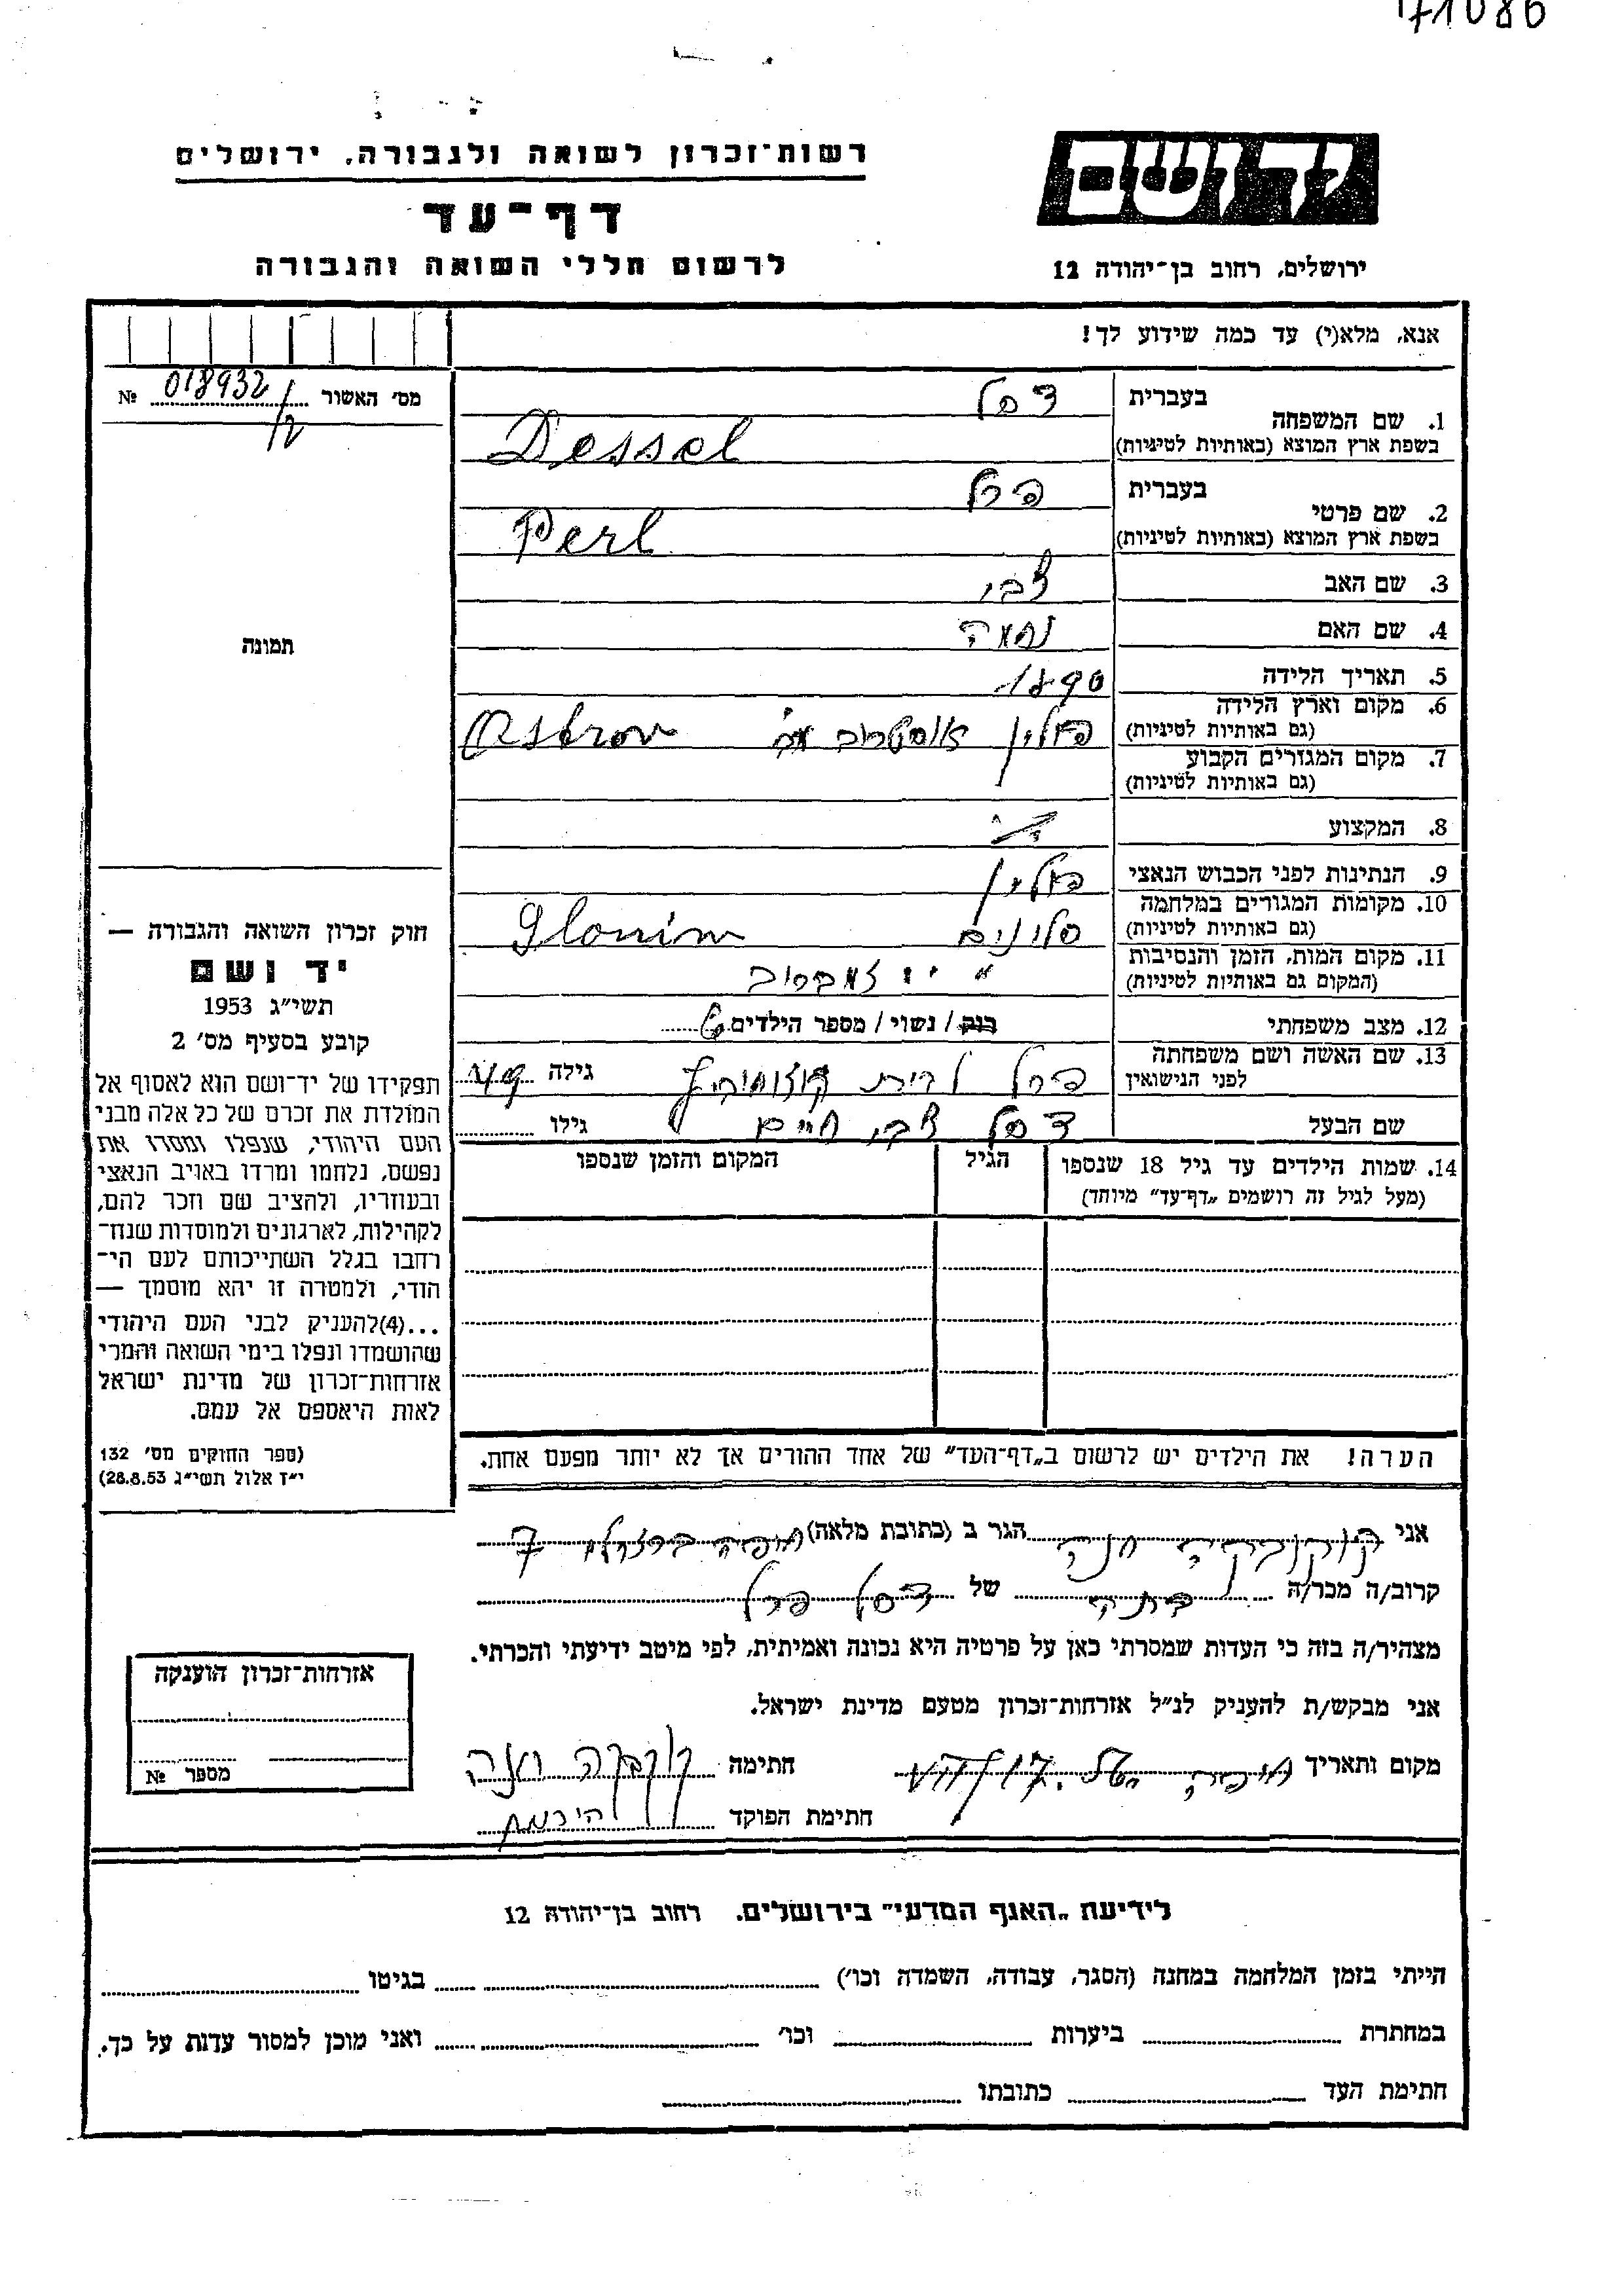 171086
רשות־זכרון לשואה ולגבורה, ירושלים
יד ושם
דף־עד
לרשום חללי השואה והגבורה
ירושלים, רחוב בן־יהודה 12
אנא, מלא(י) עד כמה שידוע לך!
מס׳ האשור 018932/12 №
תמונה
1. שם המשפחה
בעברית דסל
בשפת ארץ המוצא (באותיות לטיניות) Dessel
2. שם פרטי
בעברית פרל
בשפת ארץ המוצא (באותיות לטיניות) Perl
3. שם האב צבי
4. שם האם נחמה
5. תאריך הלידה 1890
6. מקום וארץ הלידה (גם באותיות לטיניות) פולין Ostrov
7. מקום המגורים הקבוע (גם באותיות לטיניות)
8. המקצוע
9. הנתינות לפני הכבוש הנאצי פולין
10. מקומות המגורים במלחמה (גם באותיות לטיניות) סלונים Slonim
11. מקום המות, הזמן והנסיבות (המקום גם באותיות לטיניות)
12. מצב משפחתי רווק / נשוי / מספר הילדים
13. שם האשה ושם משפחתה לפני הנישואין פרל לבית גילה
שם הבעל דסל צבי חיים גילו
14. שמות הילדים עד גיל 18 שנספו
(מעל לגיל זה רושמים „דף־עד״ מיוחד)
הגיל
המקום והזמן שנספו
הערה! את הילדים יש לרשום ב„דף־העד״ של אחד ההורים אך לא יותר מפעם אחת.
חוק זכרון השואה והגבורה —
יד ושם
תשי״ג 1953
קובע בסעיף מס׳ 2
תפקידו של יד־ושם הוא לאסוף אל
המולדת את זכרם של כל אלה מבני
העם היהודי, שנפלו ומסרו את
נפשם, נלחמו ומרדו באויב הנאצי
ובעוזריו, ולהציב שם וזכר להם,
לקהילות, לארגונים ולמוסדות שנח־
רבו בגלל השתייכותם לעם הי־
הודי, ולמטרה זו יהא מוסמך —
...(4)להעניק לבני העם היהודי
שהושמדו ונפלו בימי השואה והמרי
אזרחות־זכרון של מדינת ישראל
לאות היאספם אל עמם.
(ספר החוקים מס׳ 132
י״ז אלול תשי״ג 28.8.53)
אני חנה הגר ב (כתובת מלאה) חיפה 7
קרוב/ה מכר/ה בתה של דסל פרל
מצהיר/ה בזה כי העדות שמסרתי כאן על פרטיה היא נכונה ואמיתית, לפי מיטב ידיעתי והכרתי.
אני מבקש/ת להעניק לנ״ל אזרחות־זכרון מטעם מדינת ישראל.
מקום ותאריך חיפה חתימה חנה
חתימת הפוקד
אזרחות־זכרון הוענקה
מספר №
לידיעת „האגף המדעי״ בירושלים. רחוב בן־יהודה 12
הייתי בזמן המלחמה במחנה (הסגר, עבודה, השמדה וכו׳) בגיטו
במחתרת ביערות וכו׳ ואני מוכן למסור עדות על כך.
חתימת העד כתובתו